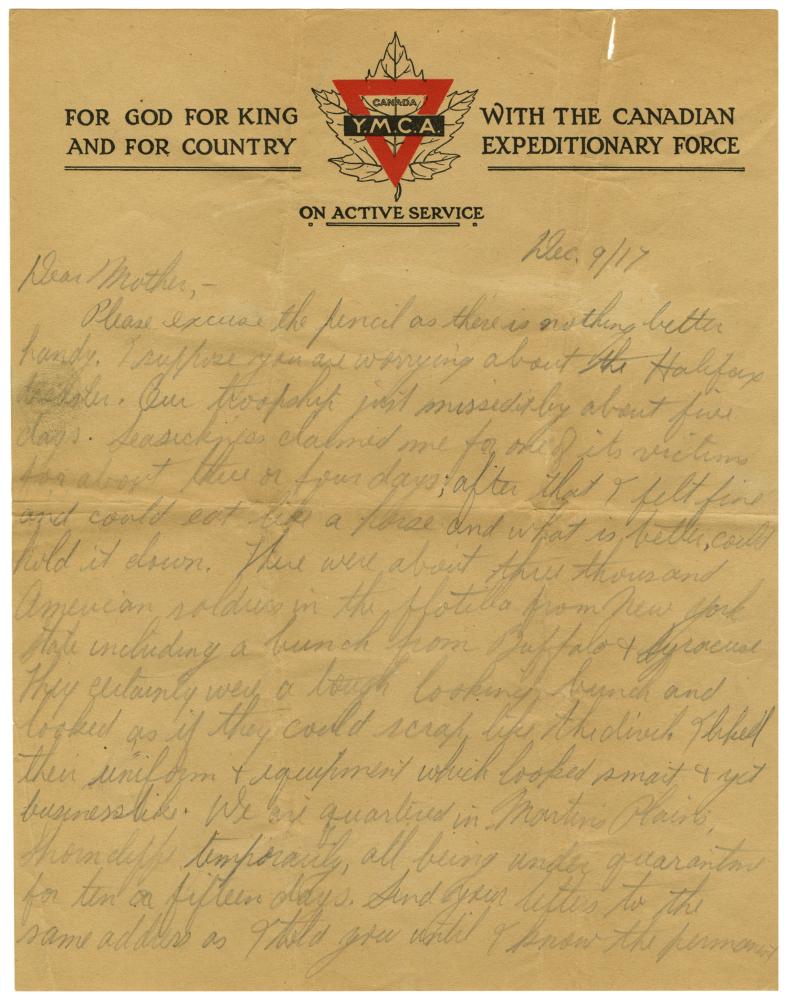 FOR GOD FOR KING
AND FOR COUNTRY
CANADA
Y.M.C.A.
WITH THE CANADIAN
EXPEDITIONARY FORCE
ON ACTIVE SERVICE
Dec. 9/17
Dear Mother,-
Please excuse the pencil as there is nothing better
handy. I suppose you are worrying about the Halifax
disaster. Our troopship just missed it by about five
days. Seasickness claimed me for one of its victims
for about three or four days; after that I felt fine
and could eat like a horse and what is better, could
hold it down. There were about three thousand
American soldiers in the flotilla from New York
State including a bunch from Buffalo & Syracuse
They certainly were a tough looking bunch and
looked as if they could scrap like the divil. I liked
their uniform & equipment which looked smart & yet
businesslike. We are quartered in Martins Plains,
Shorncliffe temporarily, all being under quarantine
for ten or fifteen days. Send your letters to the
same address as I told you until I know the permanent